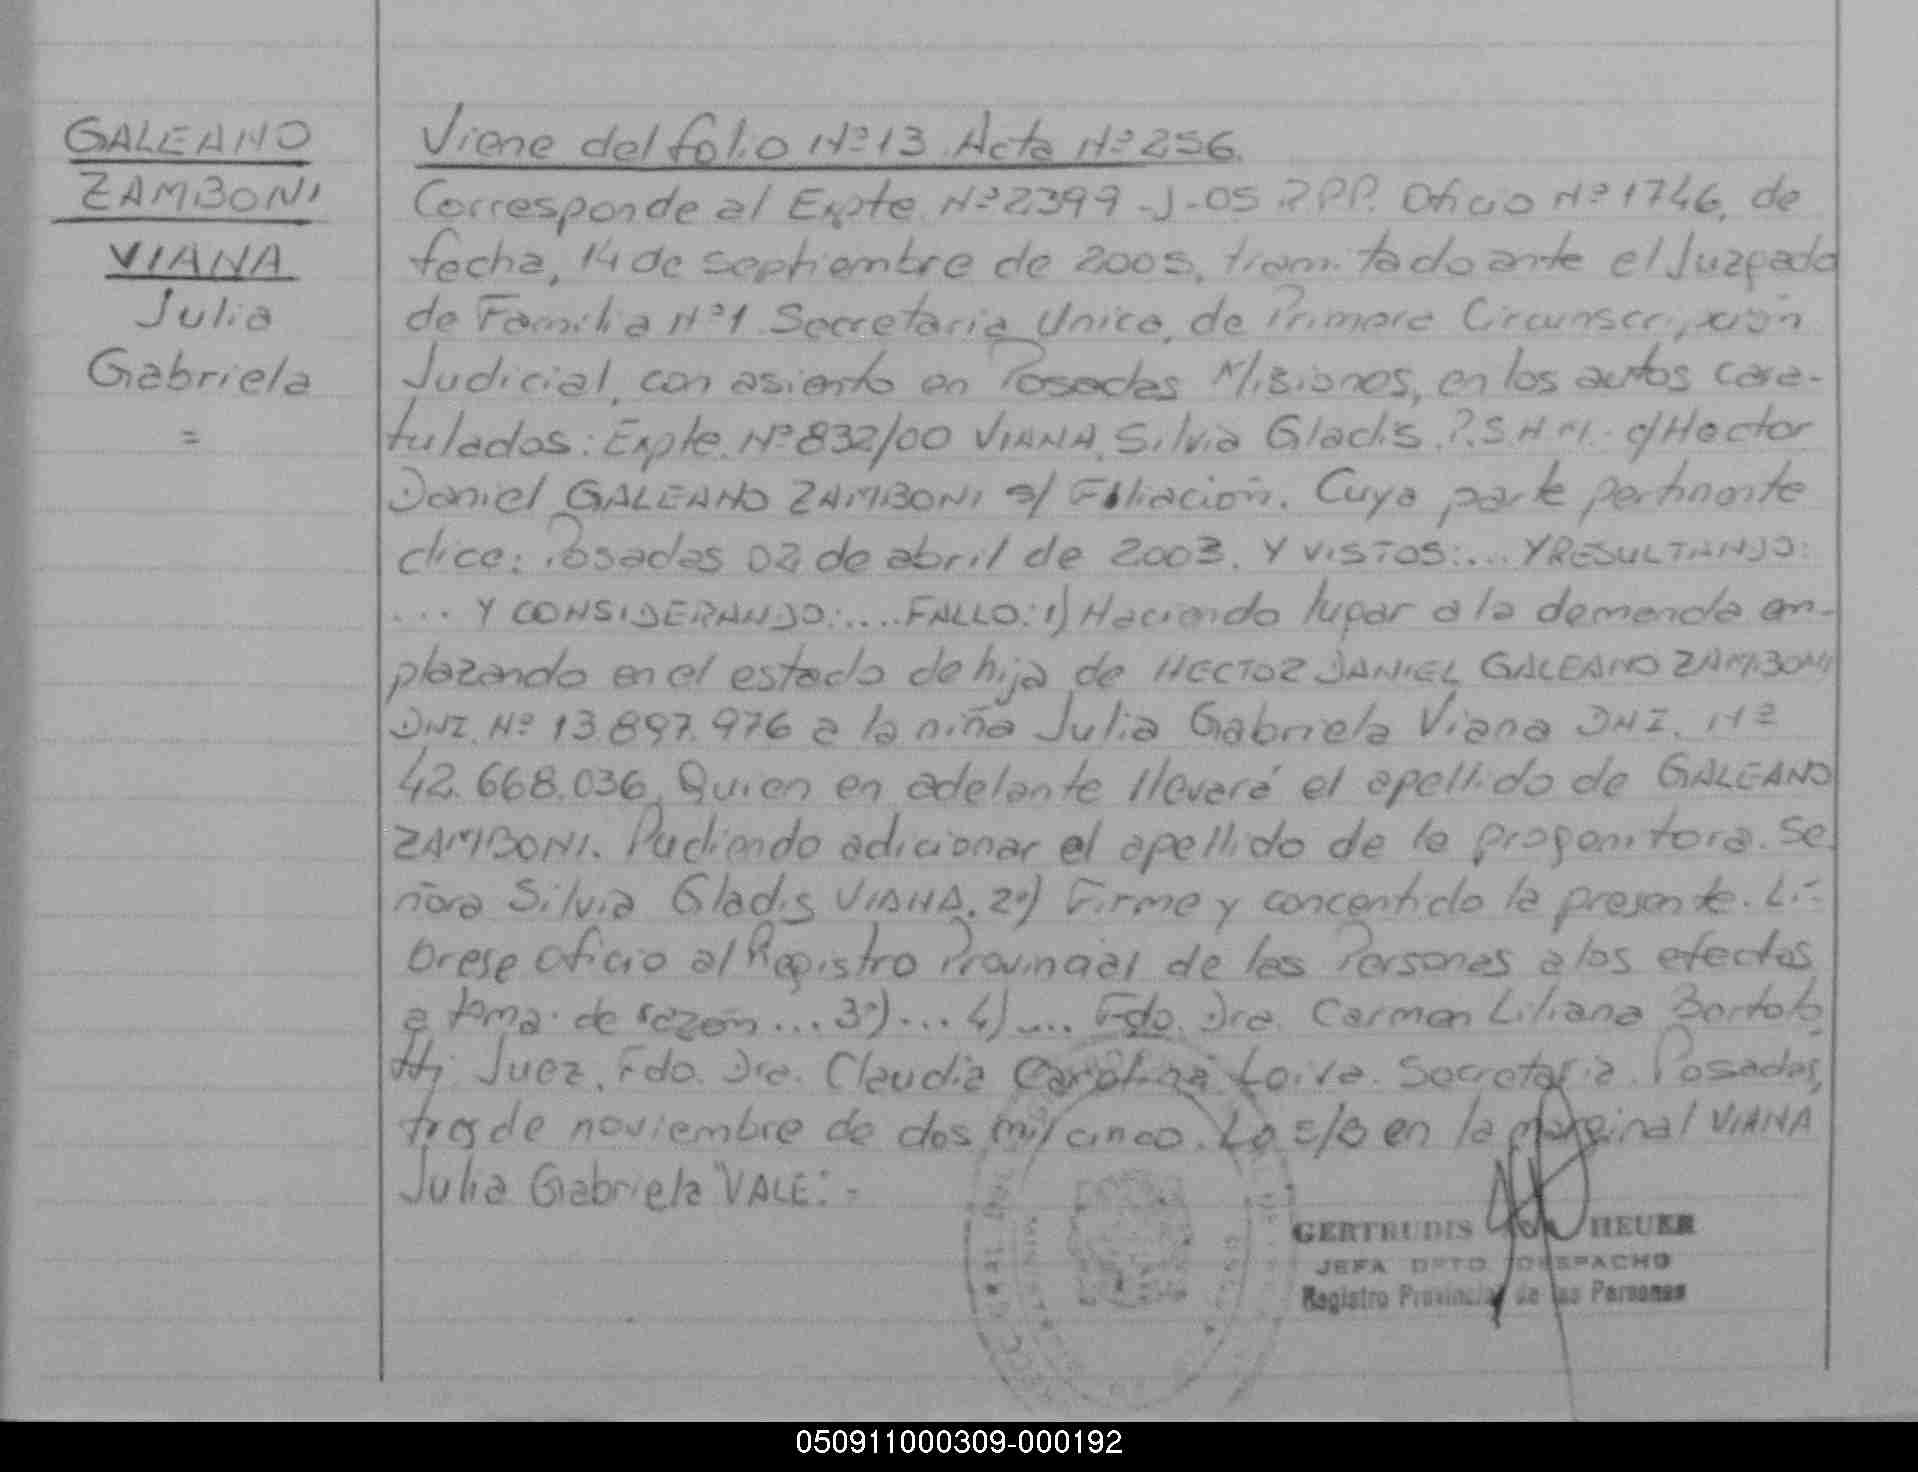 GALEANO
ZAMBONI
VIANA
Julia
Gabriela
=
Viene del folio Nº13 Acta Nº256.
Corresponde al Expte Nº2399-J-05 RPP. Oficio Nº1746, de
fecha, 14 de septiembre de 2005, tramitado ante el Juzgado
de Familia Nº1 Secretaria Unica, de Primera Circunscripción
Judicial, con asiento en Posadas Misiones, en los autos cara-
tulados: Expte. Nº832/00 VIANA, Silvia Gladis P.S.H.M. c/Hector
Daniel GALEANO ZAMBONI s/ Filiación. Cuya parte pertinente
dice: Posadas 02 de abril de 2003. Y VISTOS:... Y RESULTANDO:
... Y CONSIDERANDO:.... FALLO: 1) Haciendo lugar a la demanda em-
plazando en el estado de hija de HECTOR DANIEL GALEANO ZAMBONI
DNI. Nº 13.897.976 a la niña Julia Gabriela Viana DNI. Nº
42.668.036, Quien en adelante llevará el apellido de GALEANO
ZAMBONI. Pudiendo adicionar el apellido de la progenitora. Se
ñora Silvia Gladis VIANA. 2º) Firme y concentido la presente. Li-
brese oficio al Registro Provincial de las Personas a los efectos
a toma de razón... 3º)... 4)... Fdo. Dra. Carmen Liliana Bortolo
tti Juez. Fdo. Dra. Claudia Carolina Loiva. Secretaria. Posadas,
tres de noviembre de dos mil cinco. Lo s/b en la marginal VIANA
Julia Gabriela "VALE":=
GERTRUDIS HEUER
JEFA DPTO. DESPACHO
Registro Provincial de las Personas
050911000309-000192